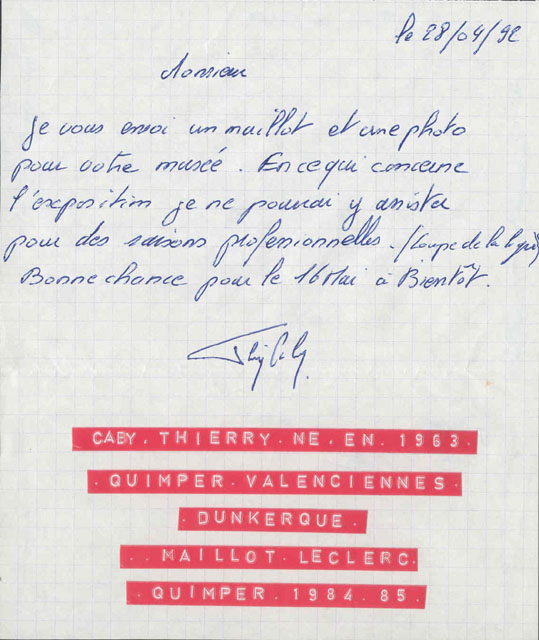 le 28/04/92
Monsieur
Je vous envoi un maillot et une photo
pour votre musée. En ce qui concerne
l'exposition je ne pourrai y assister
pour des raisons professionnelles. (Coupe de la ligue)
Bonne chance pour le 16 Mai à Bientôt.
CABY. THIERRY. NE. EN. 1963.
. QUIMPER. VALENCIENNES.
. DUNKERQUE.
.. MAILLOT. LECLERC.
. QUIMPER. 1984. 85.